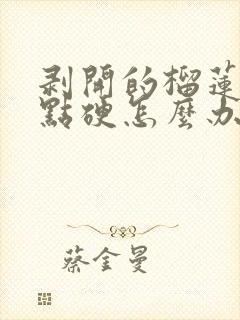 剥開的榴蓮
點硬怎麼办
蔡金曼